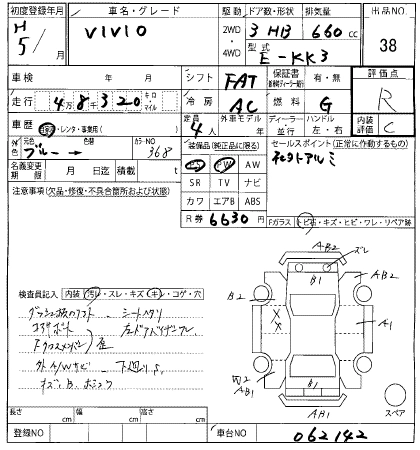 初度登録年月 車名・グレード 駆動 ドア数・形状 排気量 出品NO
H 5/ VIVIO 2WD 4WD 3 HB 660 cc 38
型式 E-KK3
車検 年 月 シフト FAT 保証書 有・無 評価点
走行 4万8千320 キロ・マイル 冷房 AC 燃料 G R
車歴 レンタ・事業用( ) 定員 4人 外車モデル 年 ディーラー 並行 ハンドル 左・右 内装評価 C
外色 元色 ブルー 色替 カラーNO 368 装備品(純正品に限る) セールスポイント(正常に作動するもの)
名義変更期限 月 日迄 積載 t PS PW AW 社外アルミ
注意事項(欠品・修復・不具合箇所および状態) SR TV ナビ
カワ エアB ABS
R券 6630 円 Fガラス トビ石・キズ・ヒビ・ワレ・リペア跡
AB2 ズレ
B1 AB2
検査員記入 内装(汚レ・スレ・キズ(キレ)・コゲ・穴 B2
シートヘタリ A1
コアサポート
歪
外A/Wサビ 下廻りS
AB1 B1
AB1 スペア
長さ cm 幅 cm 高さ cm
登録NO 車台NO 062142